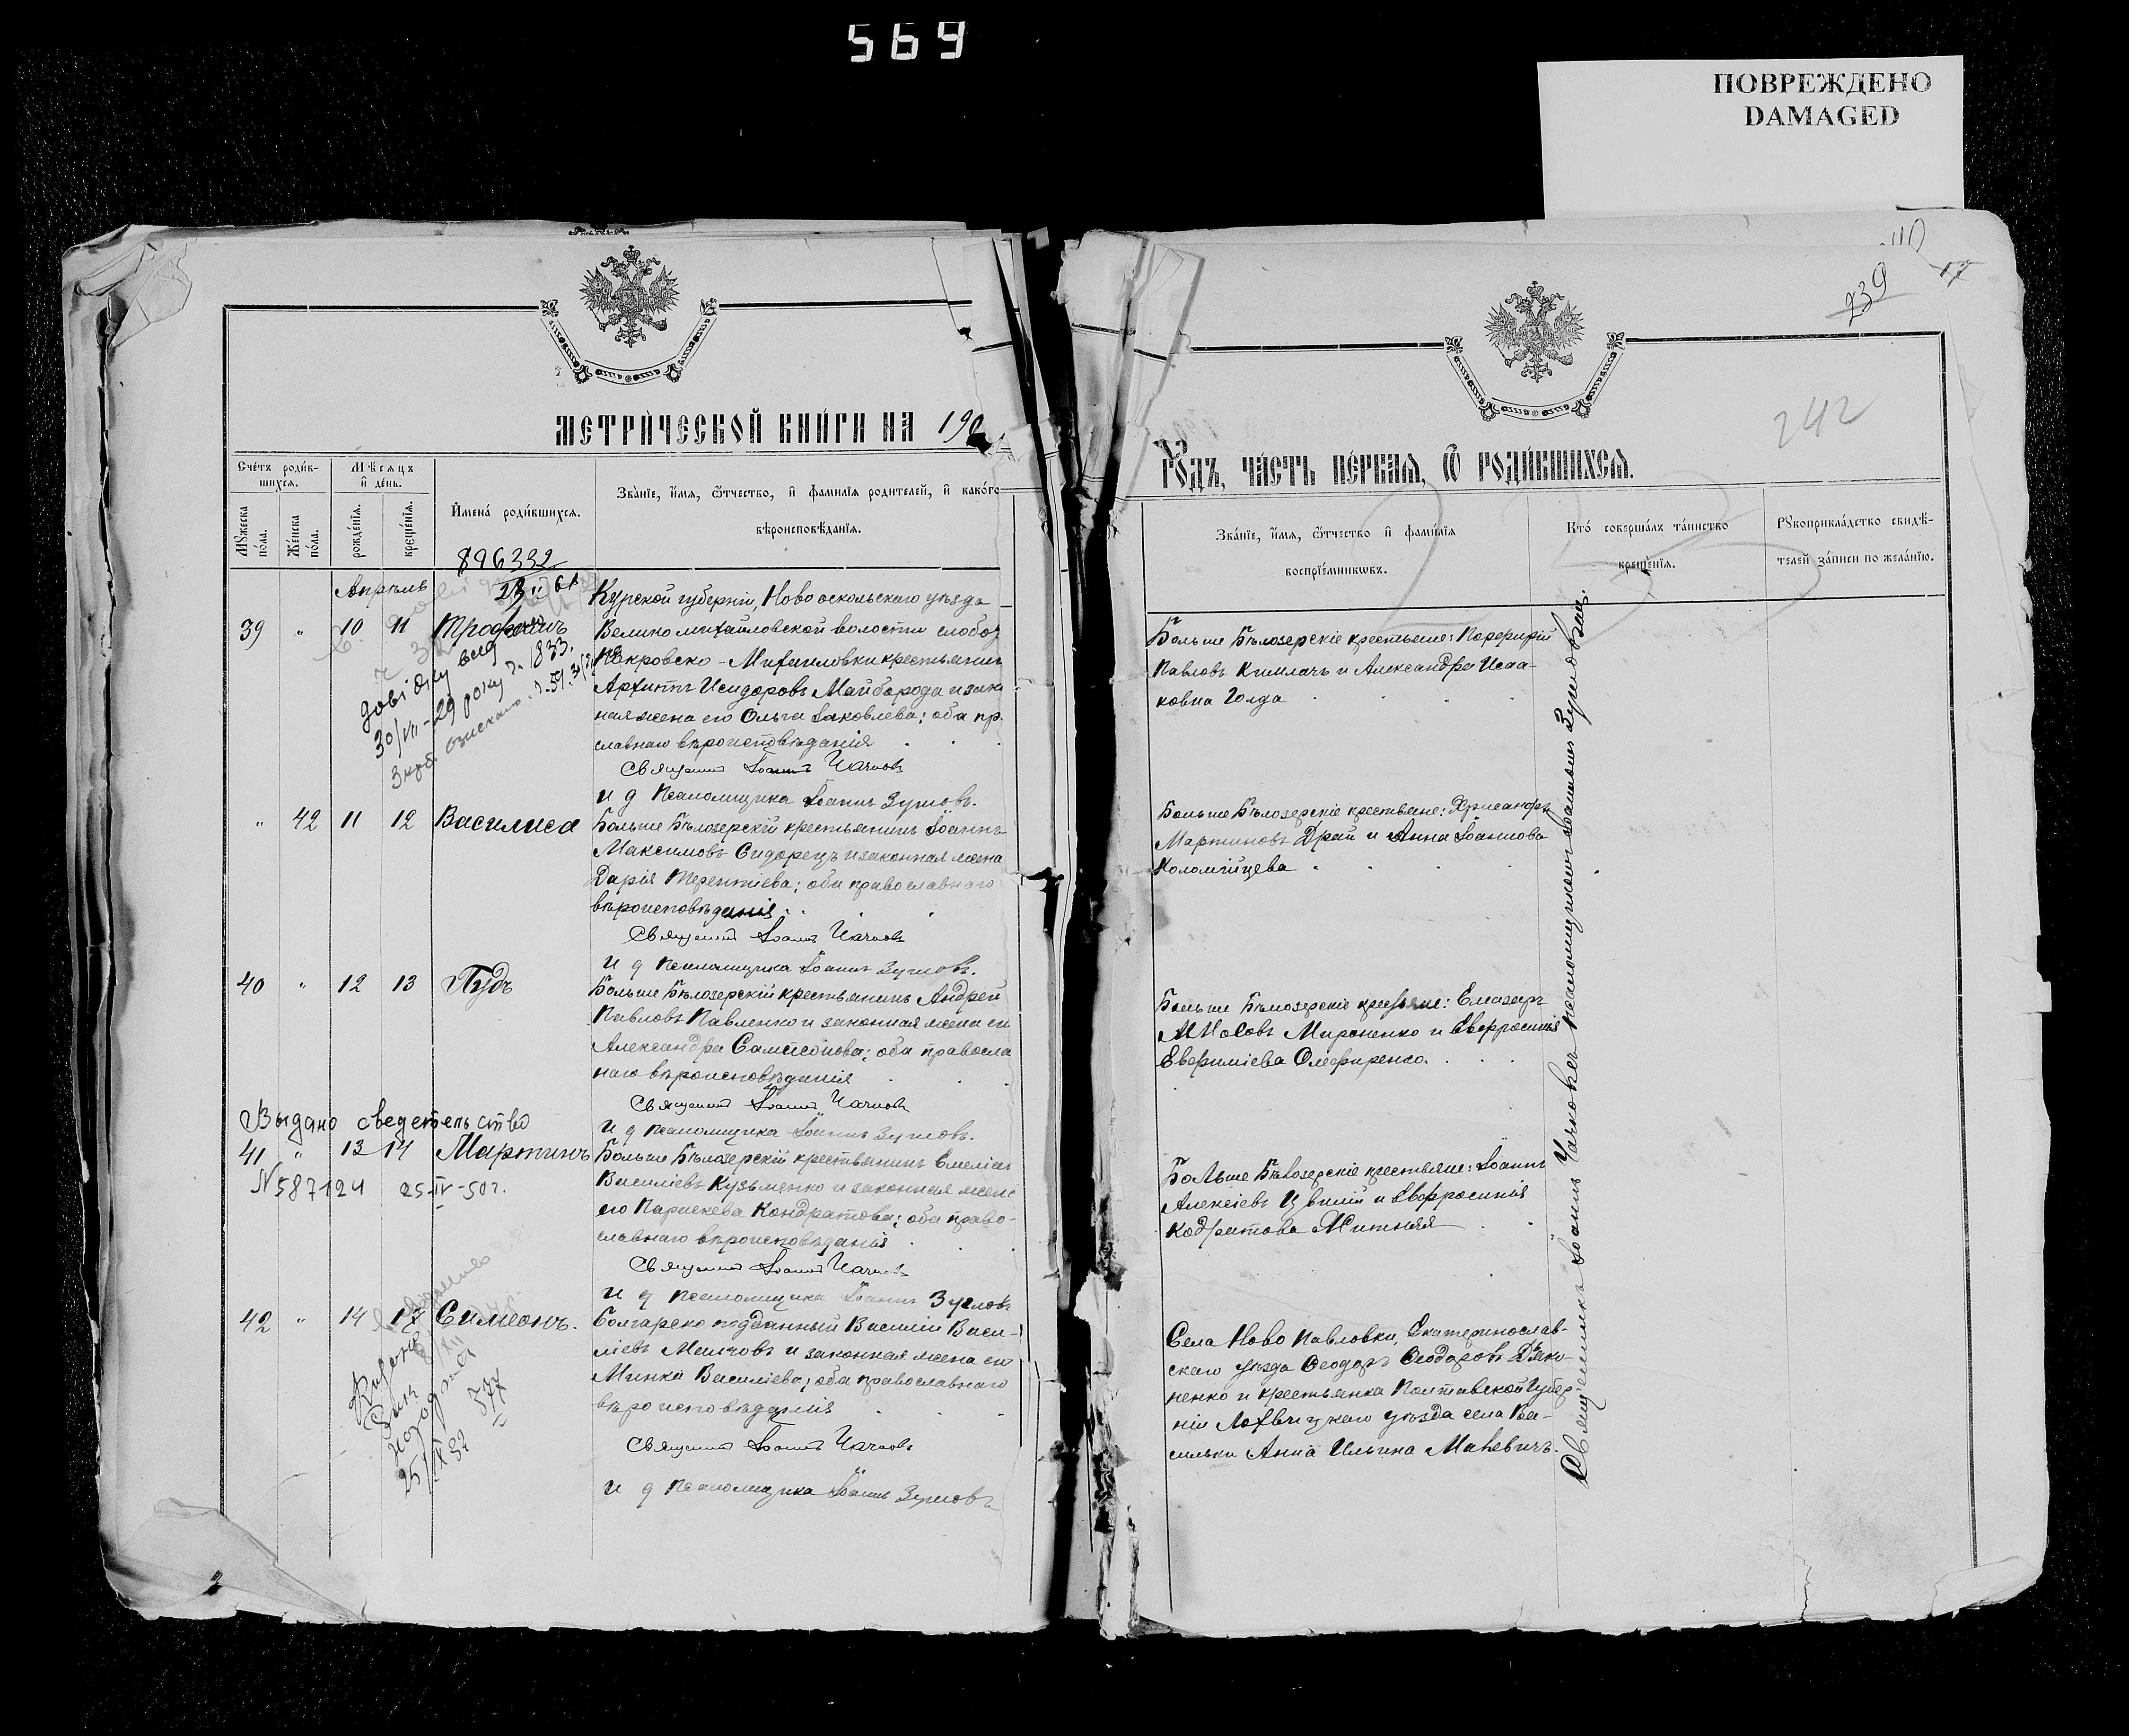 569
ПОВРЕЖДЕНО
DAMAGED
239
17
242
МЕТРИ́ЧЕСКОЙ КНИ́ГИ НА 190
ГОДЪ, ЧА́СТЬ ПЕ́РВАЯ, Ѿ РОДИ́ВШИХСЯ.
Счетъ роди́в-
шихся.
Мѣсяцъ
и де́нь.
Мужеска по́ла.
Же́нска по́ла.
рожде́нїя.
креще́нїя.
Имена́ роди́вшихся.
Зва́нїе, и́мя, ѻ́тчество, и фами́лїя родителей, и како́го
вѣроисповѣ́данїя.
Зва́нїе, и́мя, ѻ́тчество и фами́лїя
воспрїе́мниковъ.
Кто́ соверша́лъ та́инство
креще́нїя.
Рукоприкла́дство свидѣ́-
телей за́писи по жела́нїю.
896332
Апрѣль
Курской губерніи, Ново оскольскаго уѣзда
39 " 10 11 Трофимъ
Велико михайловской волости слобод
Покровско-Михаиловки крестьянинъ
Архиппъ Исидоровъ Майборода и зако
ная жена его Ольга Іаковлева; оба пр.
славнаго вѣроисповѣданія
Священникъ Іоаннъ Чачковъ
И д псаломщика Іоаннъ Зуиловъ.
довідку вид
30/VII-29 року д. 1833.
Больше Бѣлозерскіе крестьяне: Порфирій
Павловъ Кишлачъ и Александра Исаа-
ковна Голда
" 42 11 12 Василиса
Больше Бѣлозерскій крестьянинъ Іоаннъ
Максимовъ Сидорецъ и законная жена
Дарія Терентіева; оба православнаго
вѣроисповѣданія.
Священникъ Іоаннъ Чачковъ
И д псаломщика Іоаннъ Зуиловъ.
Больше Бѣлозерскіе крестьяне: Хрисанфъ
Мартиновъ Драй и Анна Іоаннова
Коломійцева
40 " 12 13 Пудъ
Больше Бѣлозерскій крестьянинъ Андрей
Павловъ Павленко и законная жена ею
Александра Сампсонова; оба правосла
наго вѣроисповѣданія
Священникъ Іоаннъ Чачковъ
И д псаломщика Іоаннъ Зуиловъ.
Больше Бѣлозерскіе крестьяне: Елеазаръ
Мироненко и Евфросинія
Евфиміева Олефиренко.
Выдано сведетельство
41 " 13 14 Мартинъ
N587124 25-IV-50г.
Больше Бѣлозерскій крестьянинъ Емеліан
Василіевъ Кузьменко и законная жена
его Параскева Кондратова; оба право-
славнаго вѣроисповѣданія
Священникъ Іоаннъ Чачковъ
И д псаломщика Іоаннъ Зуиловъ
Больше Бѣлозерскіе крестьяне: Іоаннъ
Алексіевъ Цвилій и Евфросинія
Кодратова Митняя
42 " 14 17 Симеонъ.
Болгарско подданный Василій Васи-
ліевъ Минчовъ и законная жена его
Минка Василіева; оба православнаго
вѣроисповѣданія
Священникъ Іоаннъ Чачковъ
И д псаломщика Іоаннъ Зуиловъ
Села Ново Павловки, Екатеринослав-
скаго уѣзда Ѳеодоръ Ѳеодоровъ Дьяко-
ненко и крестьянка Полтавской губер
ніи Лохвицкаго уѣзда села Ва-
сильки Анна Ильина Маневичъ.
Священникъ Іоаннъ Чачковъ псаломщикомъ Іоанномъ Зуиловымъ.